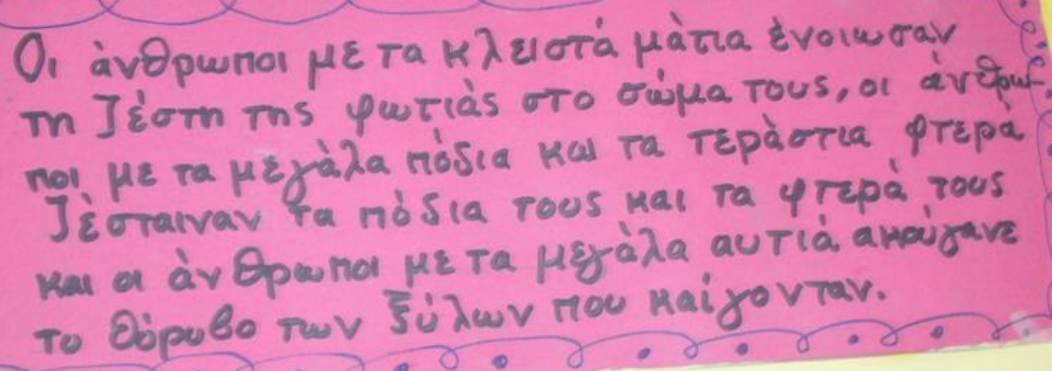 Οι άνθρωποι με τα κλειστά μάτια ένοιωσαν
τη ζέστη της φωτιάς στο σώμα τους, οι άνθρω-
ποι με τα μεγάλα πόδια και τα τεράστια φτερά
ζέσταιναν τα πόδια τους και τα φτερά τους
και οι άνθρωποι με τα μεγάλα αυτιά ακούγανε
το θόρυβο των ξύλων που καίγονταν.